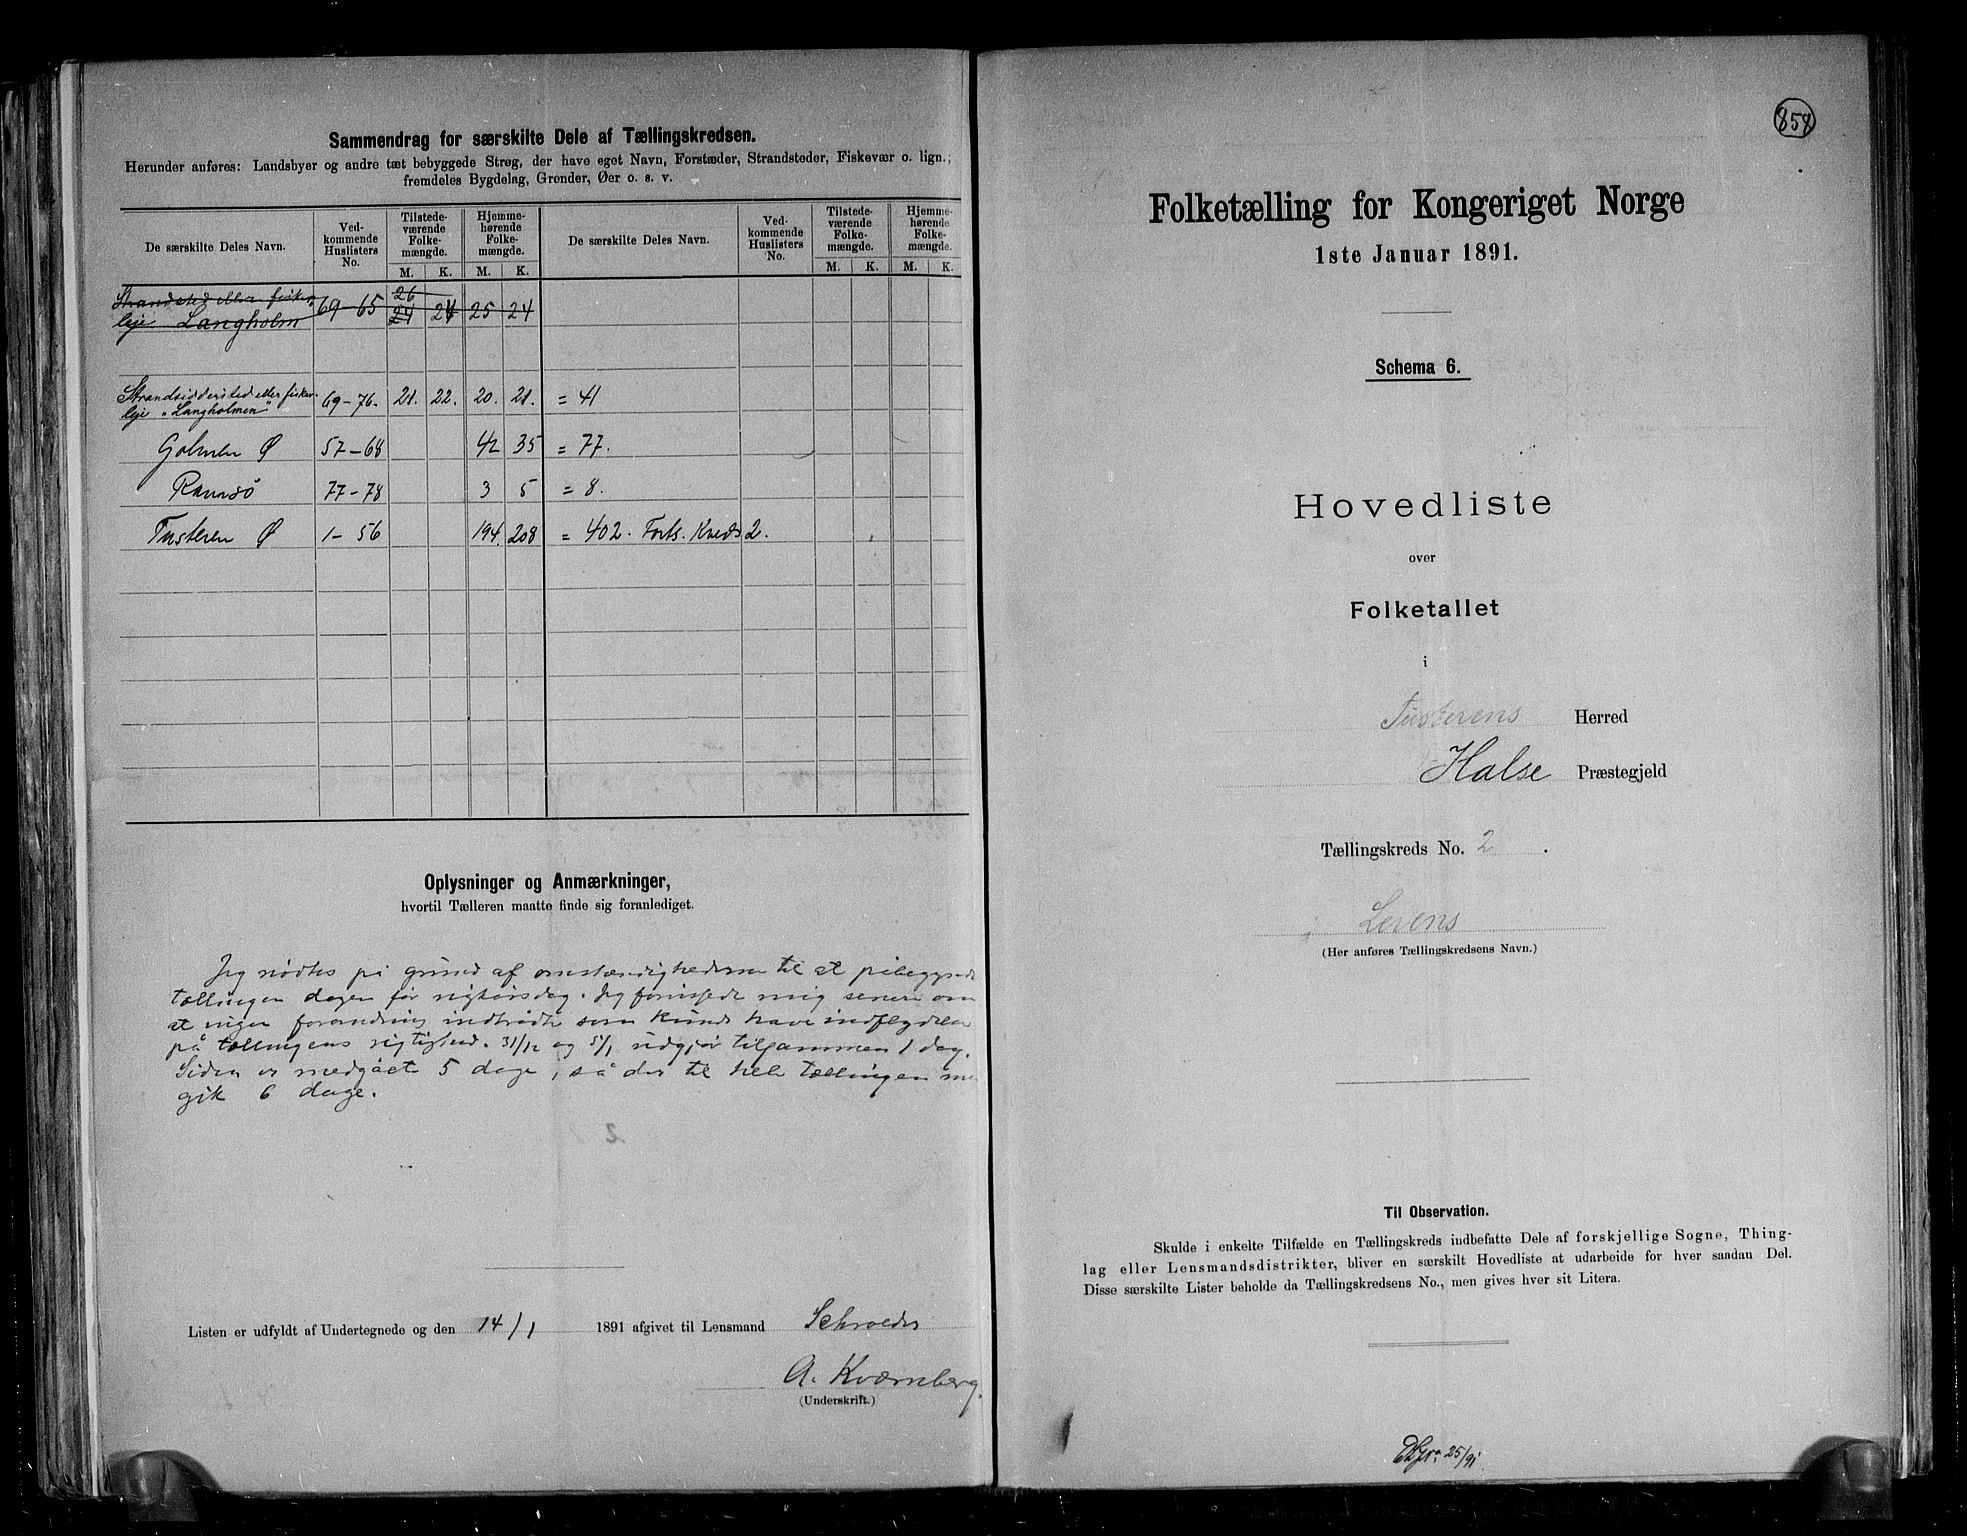 Sammendrag for særskilte Dele af Tællingskredsen.
Herunder anføres: Landsbyer og andre tæt bebyggede Strøg, der have eget Navn, Forstæder, Strandsteder, Fiskevær o. lign.;
fremdeles Bygdelag, Grender, Øer o. s. v.
De særskilte Deles Navn. Ved-kommende Huslisters No. Tilstede-værende Folke-mængde. Hjemme-hørende Folke-mængde. De særskilte Deles Navn. Ved-kommende Huslisters No. Tilstede-værende Folke-mængde. Hjemme-hørende Folke-mængde.
M. K. M. K. M. K. M. K.
Strandsted eller fisker- 26
leje Langholm 69 - 65 24 24 25 24
Strandsiddersted eller fisker-
leje "Langholmen" 69-76. 21. 22. 20. 21. = 41
Golmen Ø 57-68 42 35 = 77.
Ramsö 77-78 3 5 = 8.
Tusteren Ø 1-56 194. 208 = 402. Forts. Kreds 2.
Oplysninger og Anmærkninger,
hvortil Tælleren maatte finde sig foranlediget.
Jeg nødtes på grund af omstændighederne til at påbegynde
tællingen dagen før nyttårsdag. Jeg forvissede mig senere om
at ingen forandring indtrådte som kunde have indflydelse
på tællingens rigtighed. 31/12 og 5/1 udgjør tilsammen 1 dag.
Siden er medgået 5 dage, så der til hele tællingen
gik 6 dage.
Listen er udfyldt af Undertegnede og den 14/1 1891 afgivet til Lensmand Schrøder
A. Kværnberg.
(Underskrift.)
858
Folketælling for Kongeriget Norge
1ste Januar 1891.
Schema 6.
Hovedliste
over
Folketallet
i
Tusterens Herred
Halse Præstegjeld
Tællingskreds No. 2.
Levens
(Her anføres Tællingskredsens Navn.)
Til Observation.
Skulde i enkelte Tilfælde en Tællingskreds indbefatte Dele af forskjellige Sogne, Thing-
lag eller Lensmandsdistrikter, bliver en særskilt Hovedliste at udarbeide for hver saadan Del.
Disse særskilte Lister beholde da Tællingskredsens No., men gives hver sit Litera.
25/91